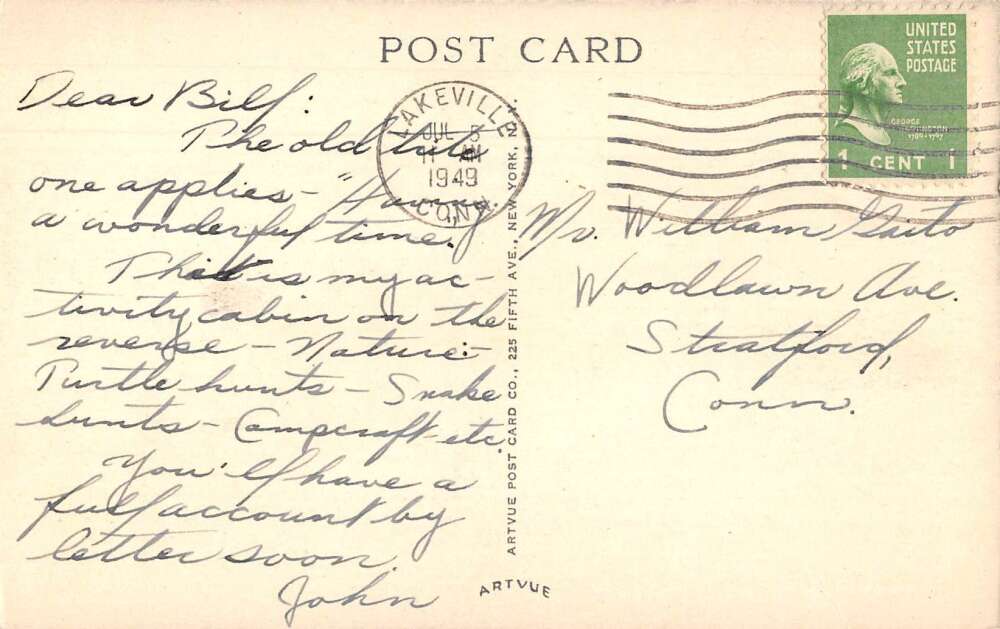 POST CARD
Dear Bill:
The old trite
one applies - "Having
a wonderful time."
This is my ac-
tivity cabin on the
reverse - Nature:-
Turtle hunts - Snake
hunts - Campcraft etc.
You'll have a
full account by
letter soon.
John
LAKEVILLE
JUL
11 AM
1949
CONN.
UNITED
STATES
POSTAGE
GEORGE
WASHINGTON
1789-1797
1 CENT 1
Mr. William Gaito
Woodlawn Ave.
Stratford,
Conn.
ARTVUE POST CARD CO., 225 FIFTH AVE., NEW YORK, N.
ARTVUE